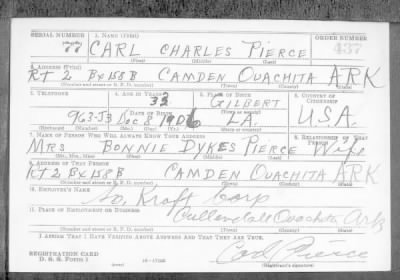 SERIAL NUMBER 1. NAME (Print) ORDER NUMBER
CARL CHARLES PIERCE 437
(First) (Middle) (Last)
2. ADDRESS (Print)
RT 2 Bx 158 B CAMDEN OUACHITA ARK
(Number and street or R. F. D. number) (Town) (County) (State)
3. TELEPHONE 4. AGE IN YEARS 5. PLACE OF BIRTH 6. COUNTRY OF CITIZENSHIP
GILBERT
DATE OF BIRTH
963-J3 Dec 8 1906 LA. U.S.A.
(Mo.) (Day) (Yr.) (State or country)
7. NAME OF PERSON WHO WILL ALWAYS KNOW YOUR ADDRESS 8. RELATIONSHIP OF THAT PERSON
MRS BONNIE DYKES PIERCE Wife
(Mr., Mrs., Miss) (First) (Middle) (Last)
9. ADDRESS OF THAT PERSON
RT 2 Bx 158 B CAMDEN OUACHITA ARK
(Number and street or R. F. D. number) (Town) (County) (State)
10. EMPLOYER'S NAME
So. Kraft Corp
11. PLACE OF EMPLOYMENT OR BUSINESS
Cullendale Ouachita Ark
(Number and street or R. F. D. number) (Town) (County) (State)
I AFFIRM THAT I HAVE VERIFIED ABOVE ANSWERS AND THAT THEY ARE TRUE.
REGISTRATION CARD
D. S. S. Form 1 (over) Carl Pierce
(Registrant's signature)